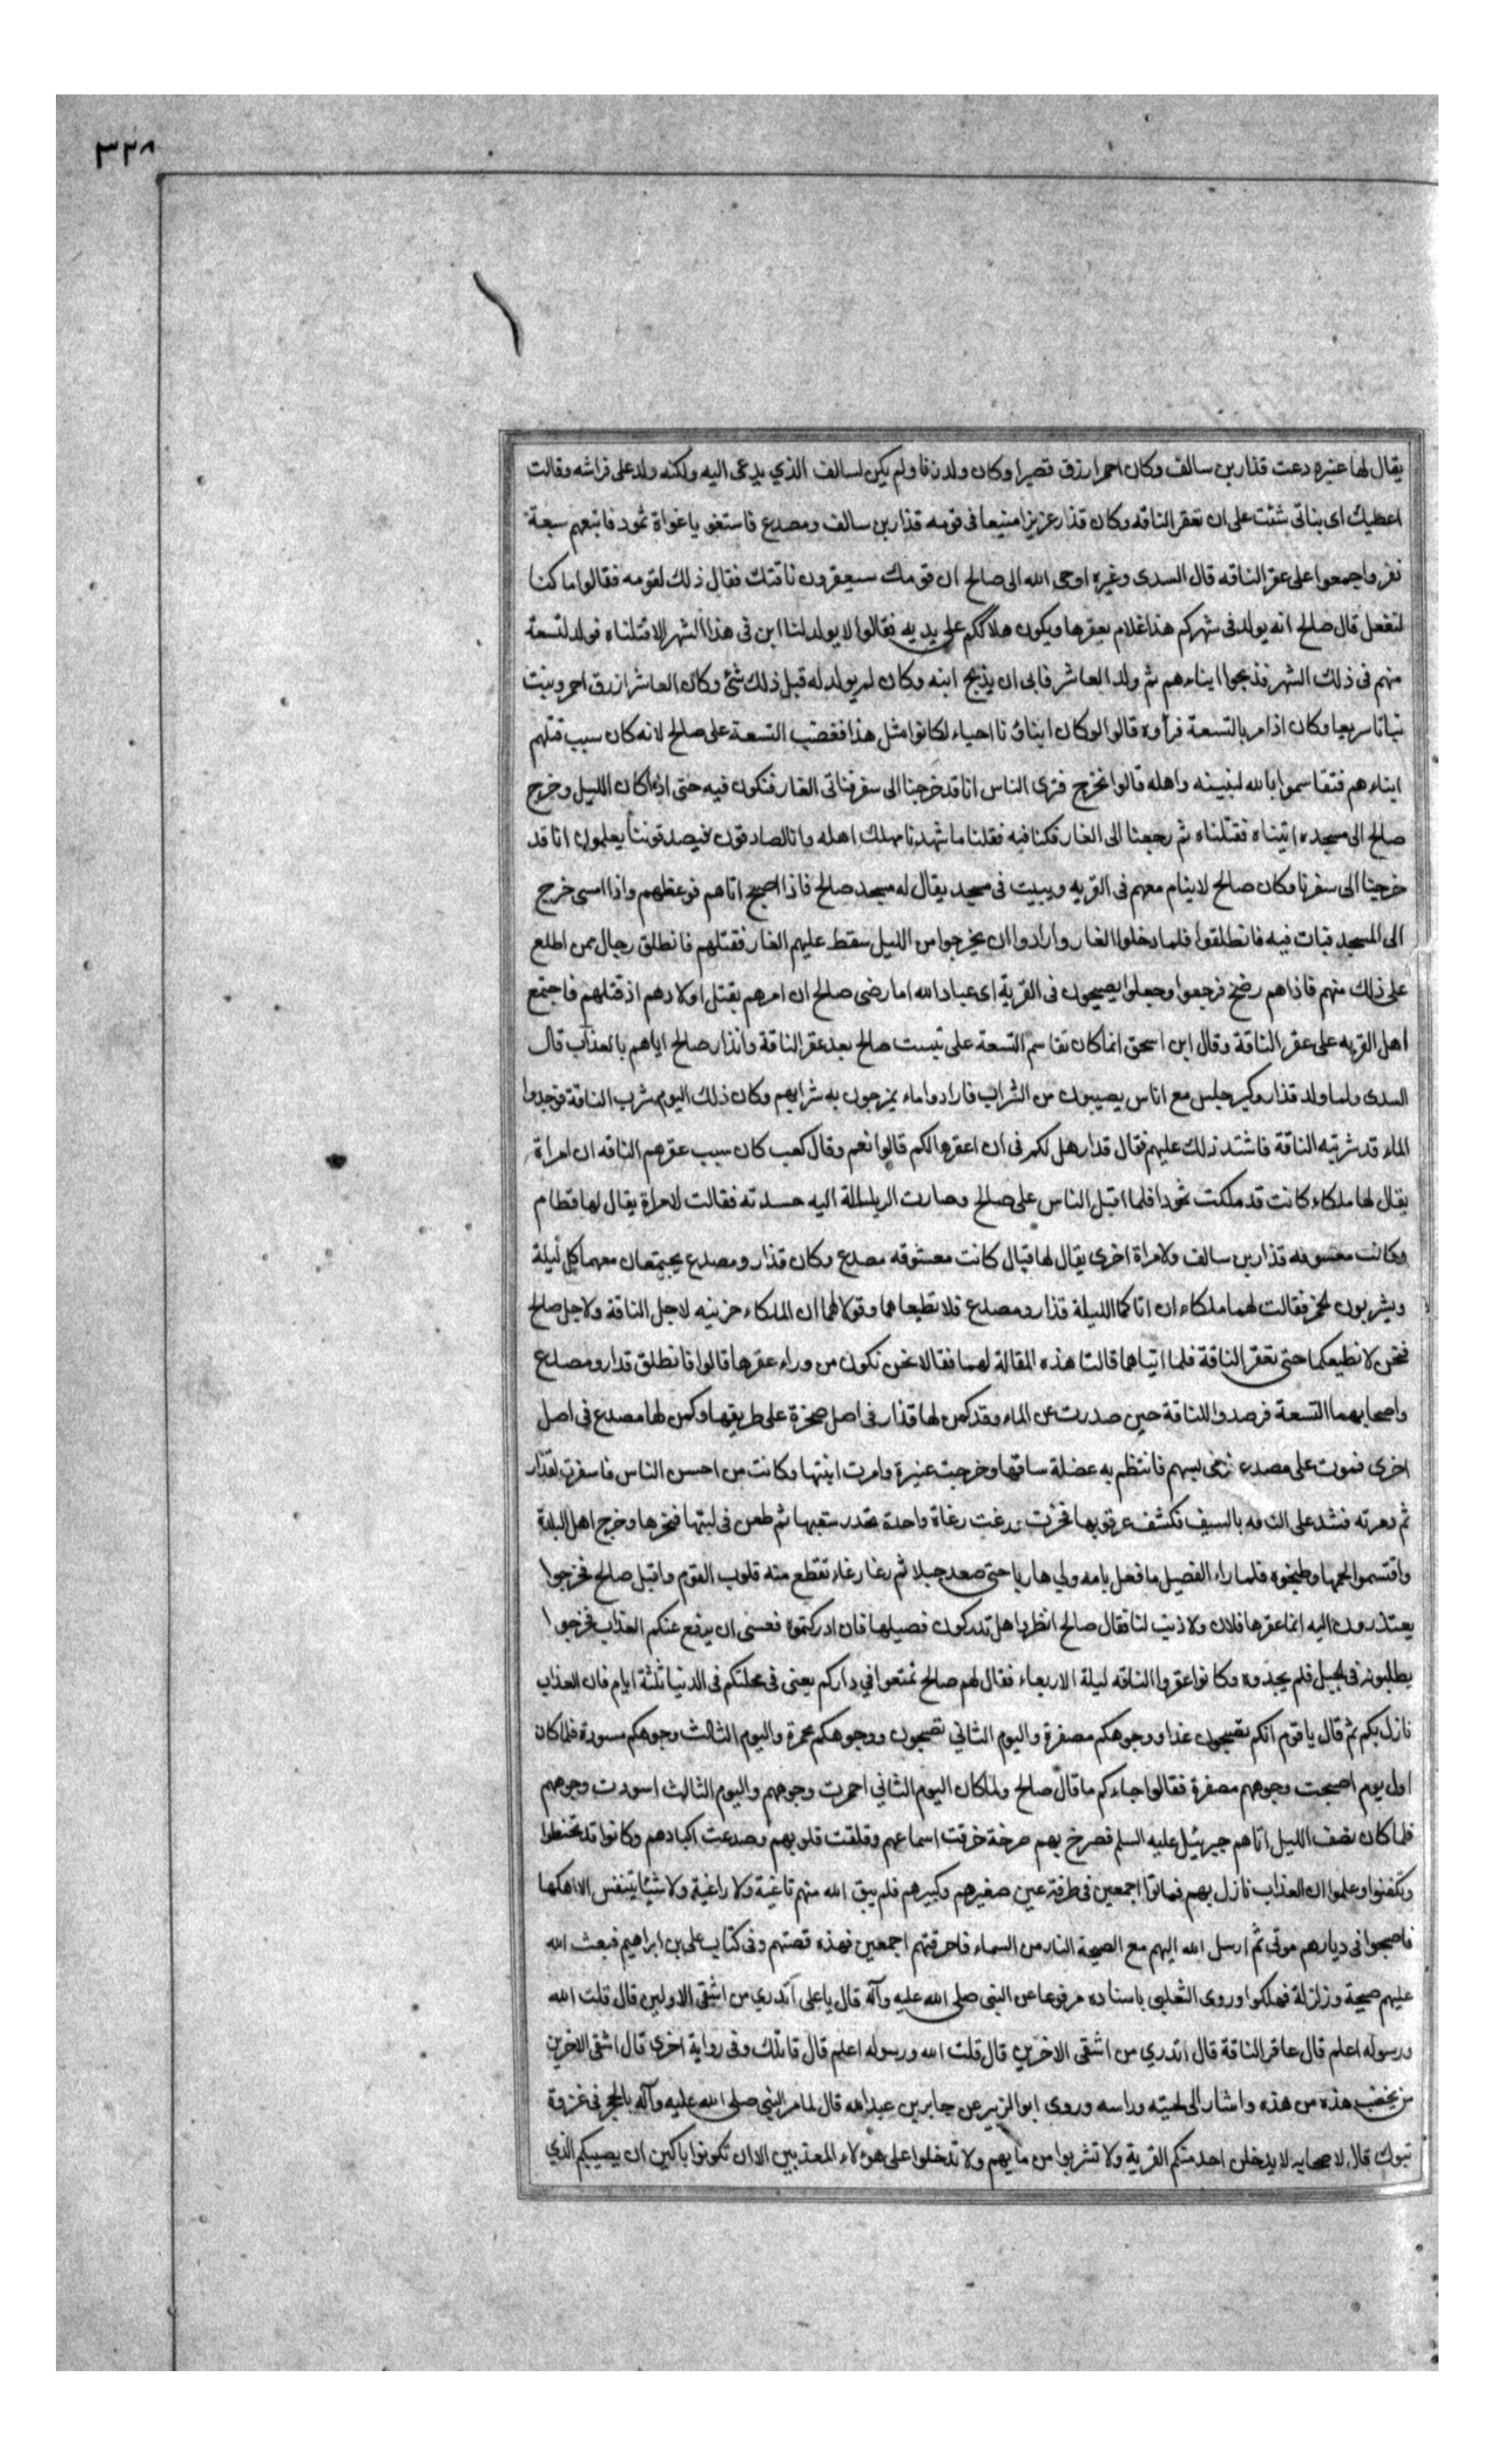 ٣٢٨
يقال لها عنيزه دعت قذار بن سالف وكان احمر ازرق قصيرا وكان ولد زنا ولم يكن لسالف الذي يدعى اليه ولكنه ولد على فراشه وقالت
اعطيك اى بناتى شئت على ان تعقر الناقه وكان قذار عزيزا منيعا فى قومه قذار بن سالف ومصدع فاستغو يا غواة ثمود فاتبعهم سبعة
نفر واجمعوا على عقر الناقه قال السدى وغيره اوحى الله الى صالح ان قومك سيعقرون ناقتك فقال ذلك لقومه فقالوا ما كنا
لنفعل قال صالح انه يولد فى شهركم هذا غلام يعقرها ويكون هلاككم على يديه فقالوا لا يولد لنا ابن فى هذا الشهر الا قتلناه فولد لتسعة
منهم فى ذلك الشهر فذبحوا ابناءهم ثم ولد العاشر فابى ان يذبح ابنه وكان لم يولد له قبل ذلك شئ وكان العاشر ازرق احمر ونبت
نباتا سريعا وكان اذا مر بالتسعة فرأوه قالوا لو كان ابناؤنا احياء لكانوا مثل هذا فغضب التسعة على صالح لانه كان سبب قتلهم
ابناءهم فتقاسموا بالله لنبيتنه واهله قالوا نخرج فترى الناس انا قد خرجنا الى سفر فناتى الغار فنكون فيه حتى اذا كان الليل وخرج
صالح الى مسجده اتيناه فقتلناه ثم رجعنا الى الغار فكنا فيه فقلنا ما شهدنا مهلك اهله وانا لصادقون فيصدقوننا يعلمون انا قد
خرجنا الى سفرنا وكان صالح لا ينام معهم فى القريه ويبيت فى مسجد يقال له مسجد صالح فاذا اصبح اتاهم فوعظهم واذا امسى خرج
الى المسجد فبات فيه فانطلقوا فلما دخلوا الغار وارادوا ان يخرجوا من الليل سقط عليهم الغار فقتلهم فانطلق رجال ممن اطلع
على ذلك منهم فاذا هم رضخ فرجعوا وجعلوا يصيحون فى القرية اى عباد الله اما رضى صالح ان امرهم بقتل اولادهم اذ قتلهم فاجتمع
اهل القريه على عقر الناقة وقال ابن اسحق انما كان تقاسم التسعة على تبييت صالح بعد عقر الناقة وانذار صالح اياهم بالعذاب قال
السدى ولما ولد قذار وكبر جلس مع اناس يصيبون من الشراب فارادوا ماء يمزجون به شرابهم وكان ذلك اليوم شرب الناقة فوجدوا
الماء قد شربته الناقة فاشتد ذلك عليهم فقال قدار هل لكم فى ان اعقرها لكم قالوا نعم وقال كعب كان سبب عقرهم الناقه ان امراة
يقال لها ملكاء كانت قد ملكت ثمودا فلما اقبل الناس على صالح وصارت الرياسة اليه حسدته فقالت لامراة يقال لها قطام
وكانت معشوقه قذار بن سالف ولامراة اخرى يقال لها قبال كانت معشوقه مصدع وكان قذار ومصدع يجتمعان معهما كل ليلة
ويشربون الخمر فقالت لهما ملكاء ان اتاكما الليلة قذار ومصدع فلا تطيعاهما وقولا لهما ان الملكاء حزينه لاجل الناقة ولاجل صالح
فنحن لا نطيعكما حتى تعقر الناقة فلما اتياهما قالتا هذه المقالة لهما فقالا نحن نكون من وراء عقرها قالوا فانطلق قدار ومصدع
واصحابهما التسعة فرصدوا للناقة حين صدرت عن الماء وقد كمن لها قذار فى اصل صخرة على طريقها وكمن لها مصدع فى اصل
اخرى فمرت على مصدع فرمى بسهم فانتظم به عضلة ساقها وخرجت عنيزة وامرت ابنتها وكانت من احسن الناس فاسفرت لقذار
ثم دمرته فشد على الناقه بالسيف فكشف عرقوبها فخرت ورغت رغاة واحدة تحذر سقبها ثم طعن فى لبتها فنحرها وخرج اهل البلدة
واقتسموا لحمها وطبخوه فلما راء الفصيل ما فعل بامه ولى هاربا حتى صعد جبلا ثم رغا رغاء تقطع منه قلوب القوم واقبل صالح فخرجوا
يعتذرون اليه انما عقرها فلان ولا ذنب لنا فقال صالح انظروا هل تدركون فصيلها فان ادركتموه فعسى ان يرفع عنكم العذاب فخرجوا
يطلبونه فى الجبل فلم يجدوه وكانوا عقروا الناقه ليلة الاربعاء فقال لهم صالح تمتعوا في داركم يعنى فى محلتكم فى الدنيا ثلثة ايام فان العذاب
نازل بكم ثم قال يا قوم انكم تصبحون غدا ووجوهكم مصفرة واليوم الثاني تصبحون ووجوهكم محمرة واليوم الثالث وجوهكم مسودة فلما كان
اول يوم اصبحت وجوههم مصفرة فقالوا جاءكم ما قال صالح ولما كان اليوم الثاني احمرت وجوههم واليوم الثالث اسودت وجوههم
فلما كان نصف الليل اتاهم جبرئيل عليه السلم فصرخ بهم صرخة خرقت اسماعهم وفلقت قلوبهم وصدعت اكبادهم وكانوا قد تحنطوا
وتكفنوا وعلموا ان العذاب نازل بهم فماتوا اجمعين فى طرفة عين صغيرهم وكبيرهم فلم يبق الله منهم ثاغية ولا راغية ولا شيئا يتنفس الا اهلكها
فاصبحوا فى ديارهم موتى ثم ارسل الله اليهم مع الصيحة النار من السماء فاحرقتهم اجمعين فهذه قصتهم وفى كتاب على بن ابراهيم فبعث الله
عليهم صيحة وزلزلة فهلكوا وروى الثعلبى باسناده مرفوعا عن النبى صلى الله عليه وآله قال يا على أتدري من اشقى الاولين قال قلت الله
ورسوله اعلم قال عاقر الناقة قال اتدري من اشقى الاخرين قال قلت الله ورسوله اعلم قال قاتلك وفى رواية اخرى قال اشقى الاخرين
من يخضب هذه من هذه واشار الى لحيته وراسه وروى ابو الزبير عن جابر بن عبدالله قال لما مر النبي صلى الله عليه وآله بالحجر فى غزوة
تبوك قال لاصحابه لا يدخلن احد منكم القرية ولا تشربوا من مايهم ولا تدخلوا على هؤلاء المعذبين الا ان تكونوا باكين ان يصيبكم الذي